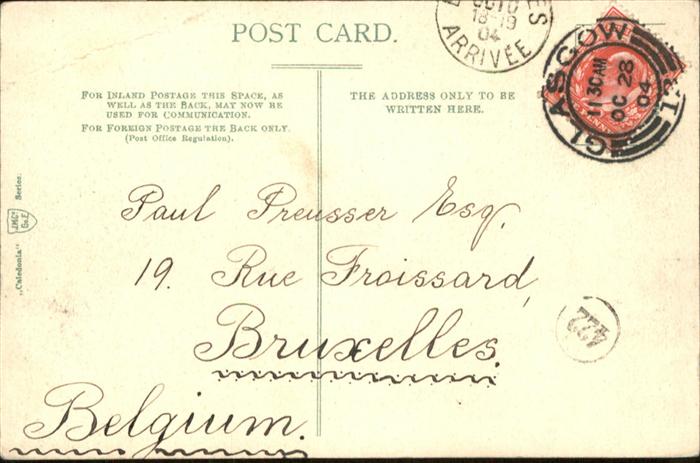 POST CARD.
ARRIVÉE
18-19
04
GLASGOW
11 30 AM
OC 28
04
FOR INLAND POSTAGE THIS SPACE, AS
WELL AS THE BACK, MAY NOW BE
USED FOR COMMUNICATION.
FOR FOREIGN POSTAGE THE BACK ONLY.
(Post Office Regulation).
THE ADDRESS ONLY TO BE
WRITTEN HERE.
"Caledonia" Series.
Paul Preusser Esq.
19. Rue Froissard,
Bruxelles.
Belgium.
422